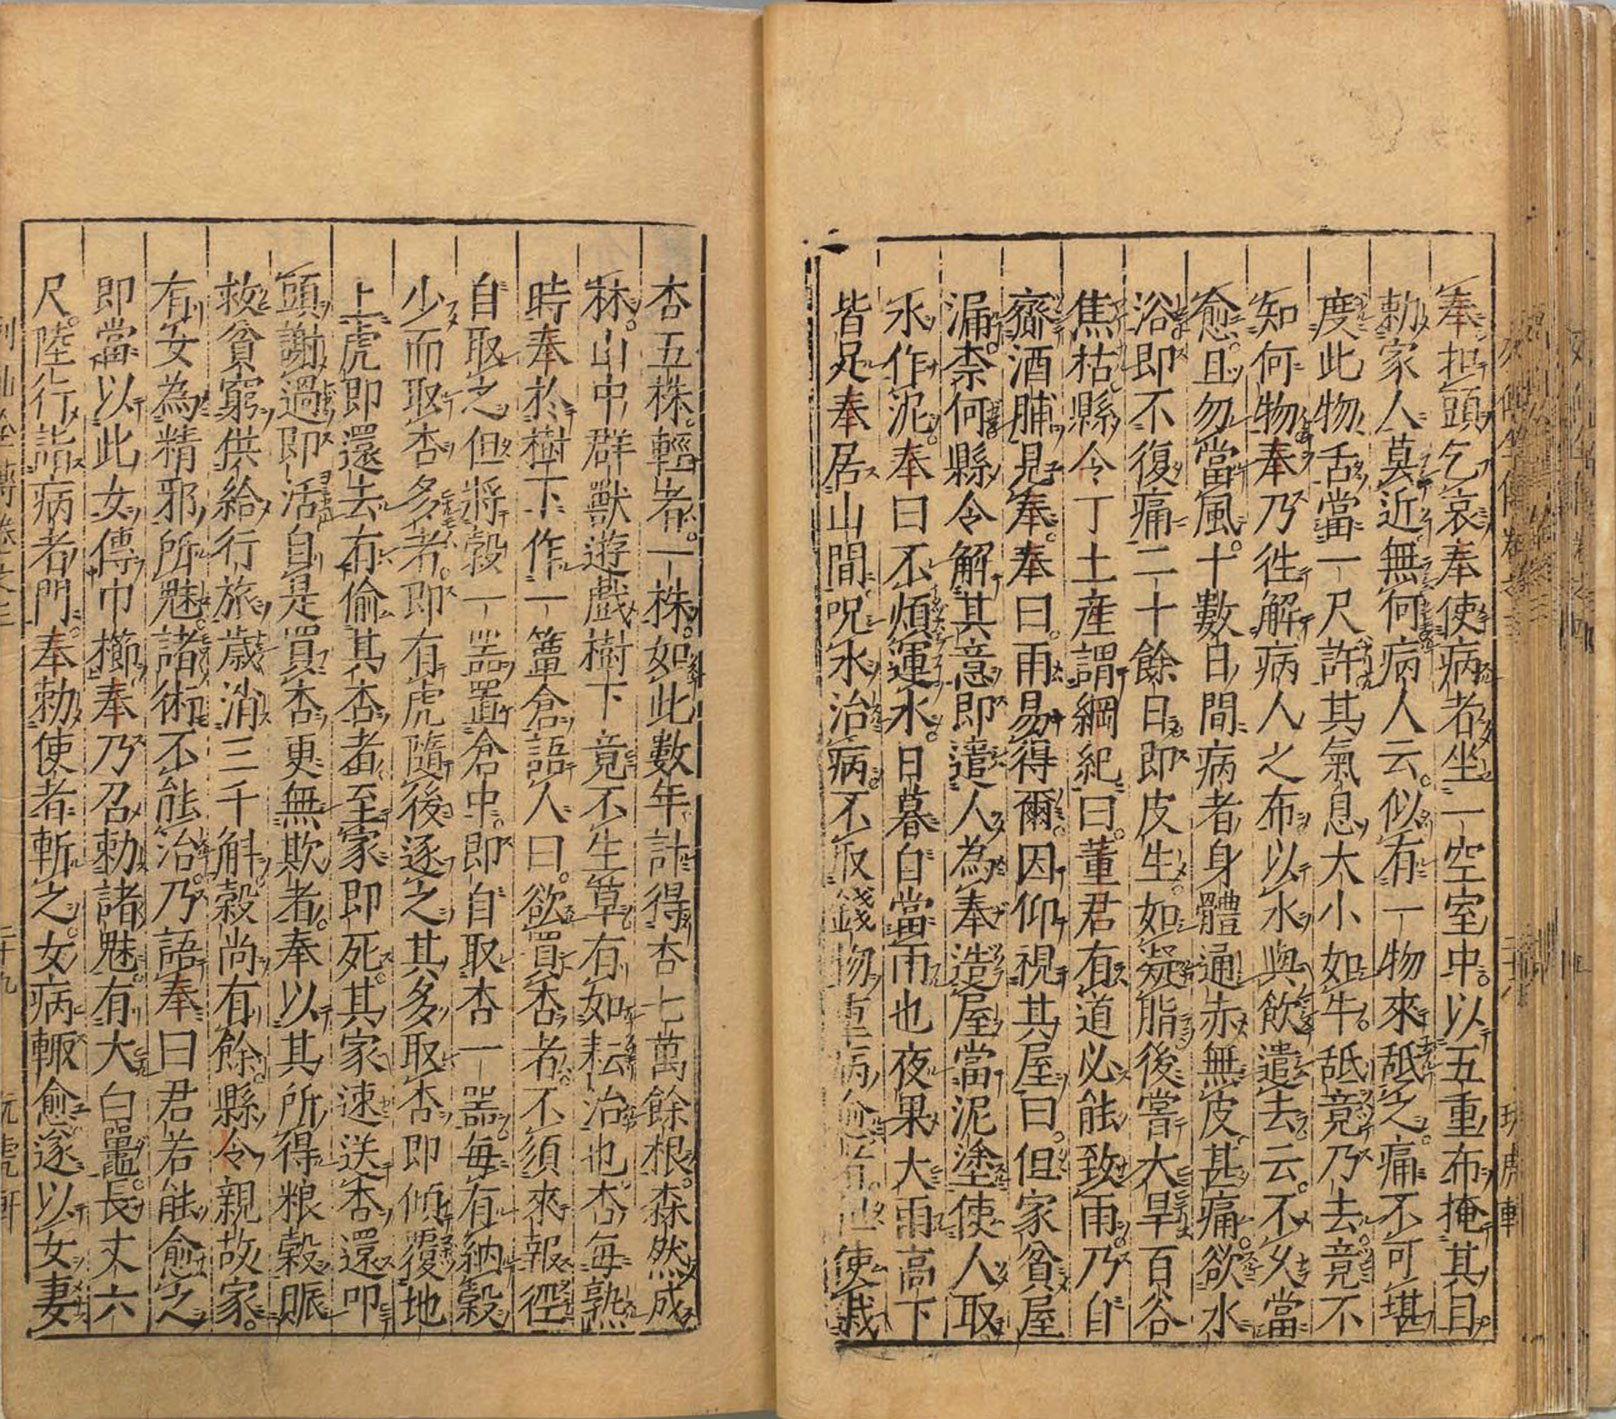 奉担頭乞哀奉使病者坐一空室中以五重布掩其目
勑家人莫近無何病人云似有一物來舐之痛不可堪
度此物舌當一尺許其氣息大小如牛舐竟乃去竟不
知何物奉乃徃解病人之布以水與飲遣去云不乆當
愈且勿當風十數日間病者身體通赤無皮甚痛欲水
浴即不復痛二十餘日即皮生如凝脂後嘗大旱百谷
焦枯縣令丁土產謂綱紀曰董君有道必能致雨乃自
齎酒脯見奉奉曰雨易得爾因仰視其屋曰但家貧屋
漏柰何縣令解其意即遣人為奉造屋當泥塗使人取
水作泥奉曰不煩運水日暮自當雨也夜果大雨高下
皆足奉居山間呪水治病不取錢物重病愈者但使栽
杏五株輕者一株如此數年計得杏七萬餘根森然成
林山中群獸遊戲樹下竟不生草有如耘治也杏每熟
時奉於樹下作一簞倉語人曰欲買杏者不須來報徑
自取之但將穀一器置倉中即自取杏一器每有納穀
少而取杏多者即有虎隨後逐之其多取杏即傾覆地
上虎即還去有偷其杏者至家即死其家速送杏還叩
頭謝過即活自是買杏更無欺者奉以其所得粮穀賑
救貧窮供給行旅歲消三千斛穀尚有餘縣令親故家
有女為精邪所魅諸術不能治乃語奉曰君若能愈之
即當以此女傳巾櫛奉乃召勑諸魅有大白鼉長丈六
尺陸行詣病者門奉勑使者斬之女病輙愈遂以女妻
列仙全傳卷之三 二十九 玩虎軒